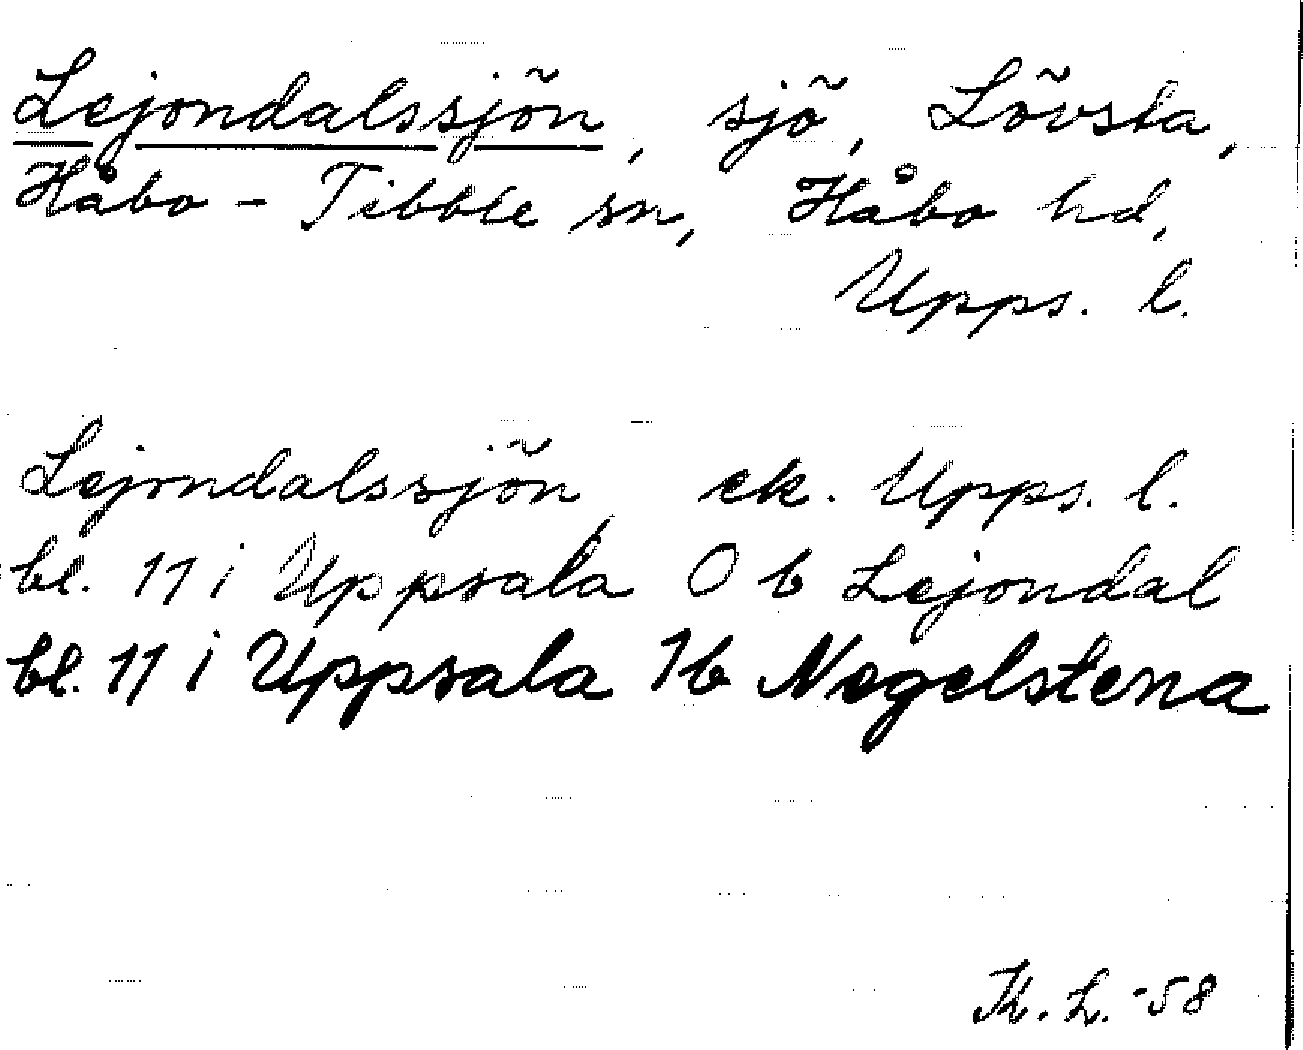 Lejondalssjön, sjö, Lövsta,
Håbo-Tibble sn, Håbo hd,
Upps. l.
Lejondalssjön, ek. Upps. l.
bl. 11 i Uppsala 0 b Lejondal
bl. 11 i Uppsala 1b Negelstena
Th. L. -58